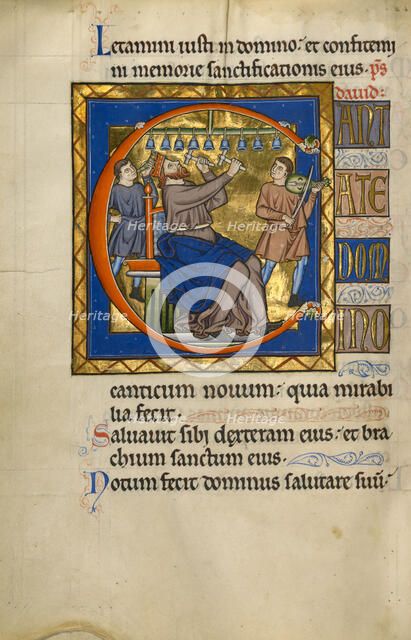 Letamini iusti in domino: et confitemi
ni memorie sanctificationis eius. ps
david:
C
ANT
ATE
DOM
INO
canticum novum: quia mirabi
lia fecit.
Salvavit sibi dextera eius: et bra
chium sanctum eius.
Notum fecit dominus salutare suu:
Heritage
Heritage
Heritage
Heritage
Heritage
Heritage
Heritage
Heritage